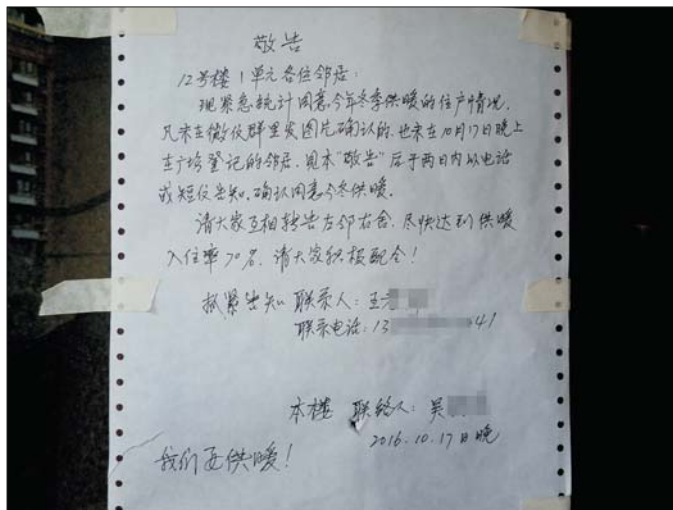 敬告
12号楼1单元各位邻居:
现紧急统计同意今年冬季供暖的住户情况,
凡未在微信群里发图片确认的,也未在10月17日晚上
在广场登记的邻居,见本"敬告"后于两日内以电话
或短信告知,确认同意今冬供暖。
请大家互相转告左邻右舍,尽快达到供暖
入住率70%,请大家积极配合!
紧告知 联系人:王
联系电话:13 41
本楼 联络人:吴
2016.10.17日晚
我们要供暖!